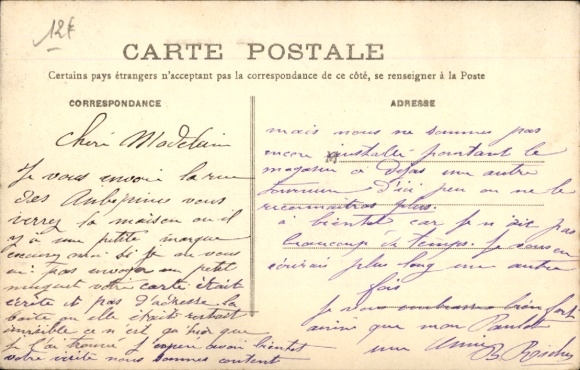 12f
CARTE POSTALE
Certains pays étrangers n'acceptant pas la correspondance de ce côté, se renseigner à la Poste
CORRESPONDANCE
Cheri Madelain
Je vous envoi la rue
des Aubepines vous
verrez la maison ou il
y à une petite marque
moi si je ne vous
ai pas envoyer un petit
muguet votre carte était
écrite et pas d'adresse la
boite ou elle était restait
ce n'est qu'hier que
je l'ai trouvé j'espère avoir bientot
votre visite nous sommes content
ADRESSE
mais nous ne sommes pas
encore installé pourtant le
magasin a dejas une autre
tournure d'ici peu on ne le
reconnaitras plus.
à bientôt car je n'ait pas
beaucoup de temps. Je vous en
écrirais plus long une autre
fois
Je vous embrasse bien fort
ainsi que mon Paulot
une Amie
B.